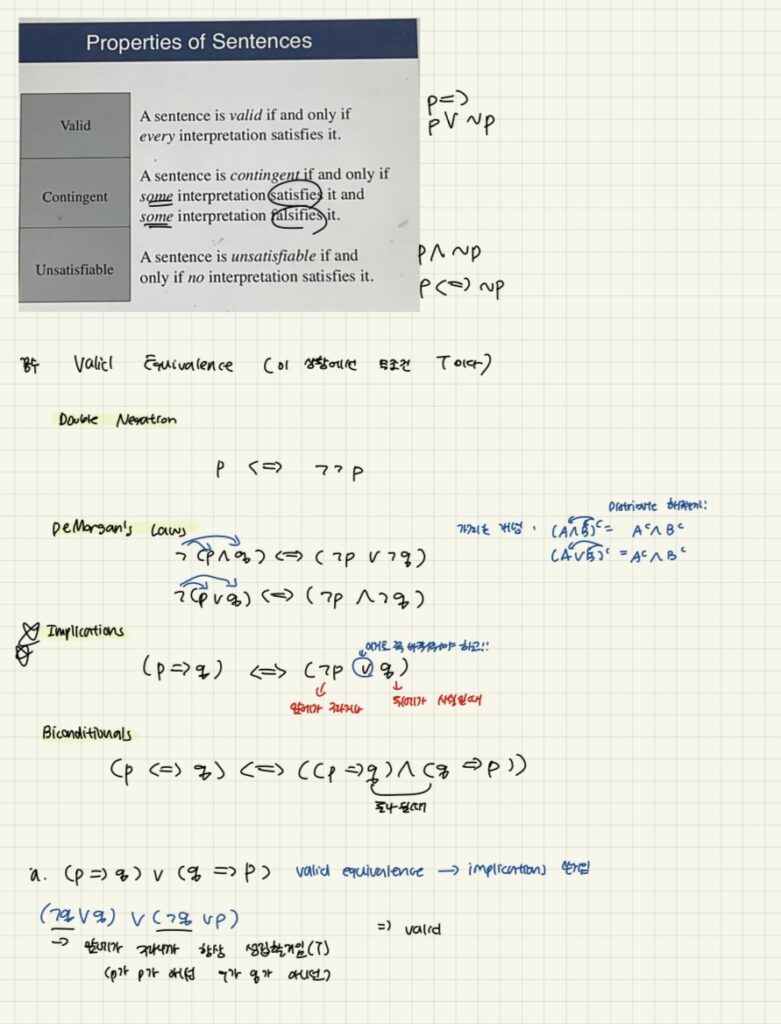 Properties of Sentences
Valid
A sentence is valid if and only if
every interpretation satisfies it.
p=>
p∨~p
Contingent
A sentence is contingent if and only if
some interpretation satisfies it and
some interpretation falsifies it.
Unsatisfiable
A sentence is unsatisfiable if and
only if no interpretation satisfies it.
p∧~p
p<=>~p
Valid Equivalence (이 상황에선 무조건 T이다)
Double Negation
p <=> ¬¬p
DeMorgan's Laws
¬(p∧q) <=> (¬p ∨ ¬q)
¬(p∨q) <=> (¬p ∧ ¬q)
Distribute
개념
=
A^c ∧ B^c
(A∨B)^c = A^c ∧ B^c
Implications
이거로 꼭 바꿔줘야 하고!!
(p=>q) <=> (¬p ∨ q)
뒤에가 사실일때
Biconditionals
(p <=> q) <=> ((p =>q)∧(q =>p))
둘다 일때
a. (p=>q) ∨ (q =>p) valid equivalence → implications
∨q) ∨ (¬q ∨p)
=) valid
항상